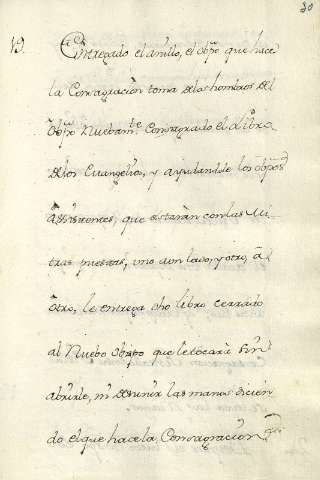 30
19. Entregado el anillo, el obpo que hace
la Consagraciòn toma de los hombros del
obpo Nuebamte Consagrado el Libro
de los Evangelios, y aiudandole los obpos
assistentes, que estaràn con las Mi-
tras puestas, uno à un lado, y otro, à
otro, le entrega dho libro cerrado
al Nuebo obispo que le tocarà sin
abrirle, ni desunir las manos dicien
do el que hace la Consagraciòn